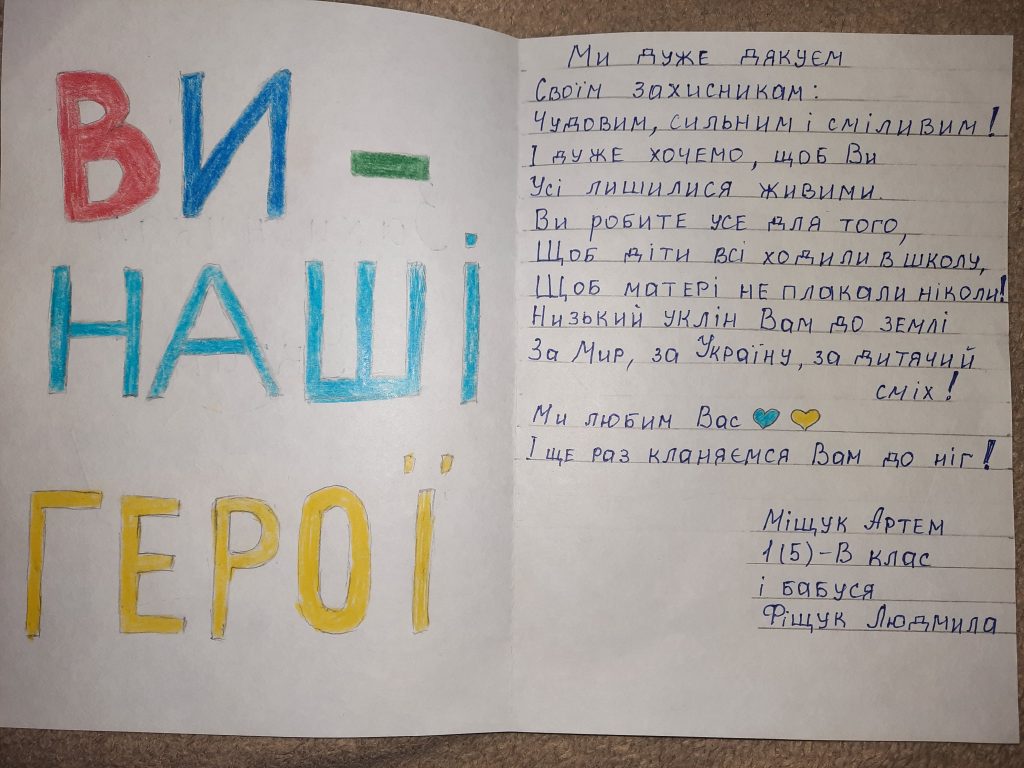 ВИ -
НАШІ
ГЕРОЇ
Ми дуже дякуєм
Своїм захисникам:
Чудовим, сильним і сміливим!
І дуже хочемо, щоб Ви
Усі лишилися живими.
Ви робите усе для того,
Щоб діти всі ходили в школу,
Щоб матері не плакали ніколи!
Низький уклін Вам до землі
За Мир, за Україну, за дитячий
сміх!
Ми любим Вас
І ще раз кланяємся Вам до ніг!
Міщук Артем
1(5)-В клас
і бабуся
Фіщук Людмила